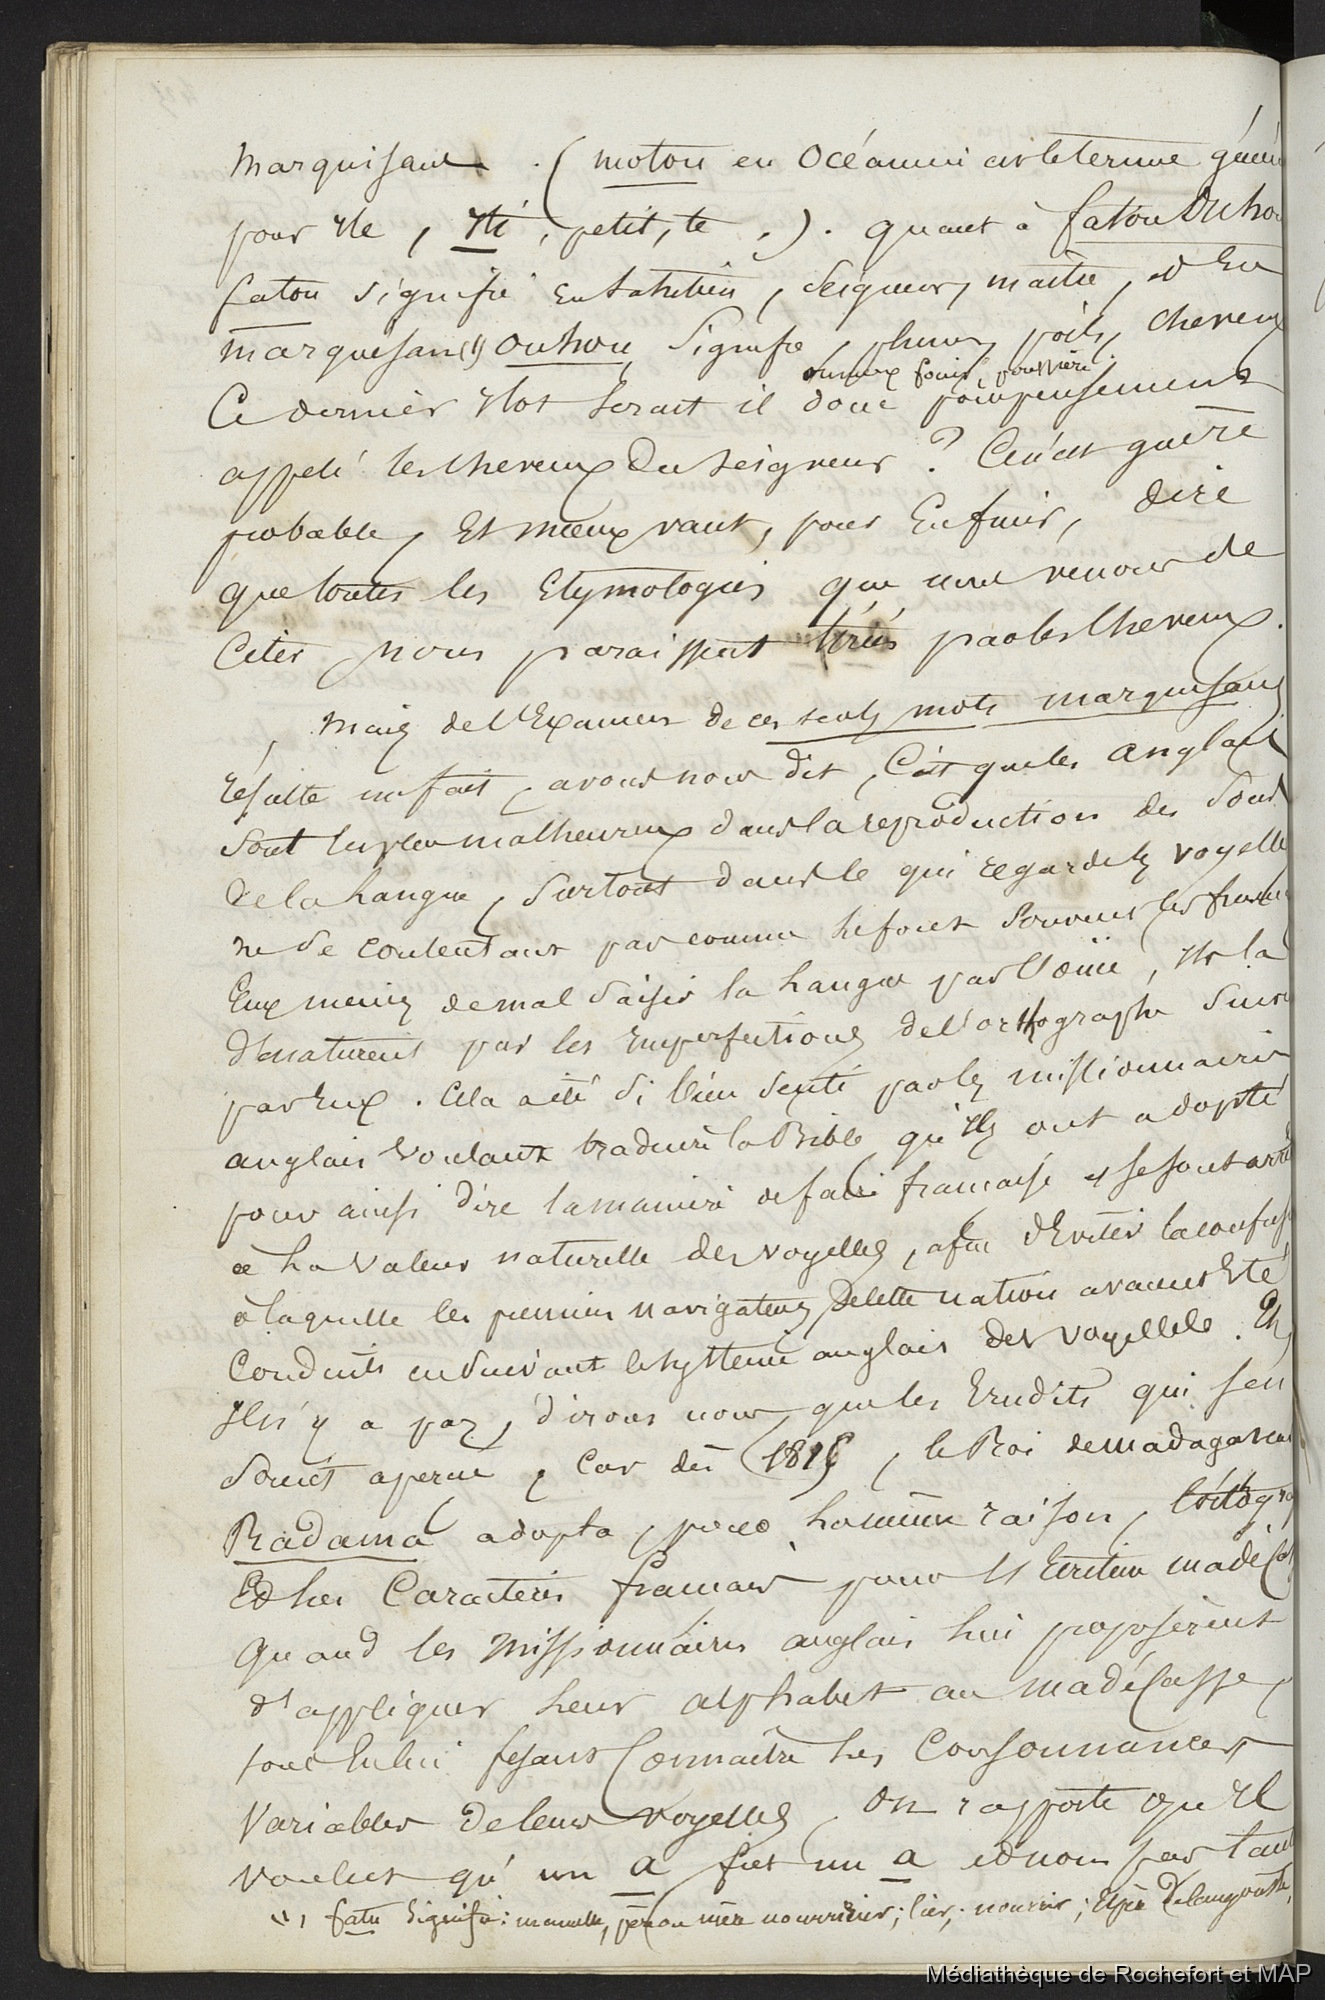 Marquisant . (motou en Océanien est le terme géné
pour Ile, Iti, petit, te .). quant à fatou Ouhou
fatou signifie en tahitien, seigneur, maître, et En
marquesan (1) ouhou signifie, plume, poils, cheveux
fouir poussière.
Ce dernier Ilot serait il donc pompeusement
appelé les cheveux Du Seigneur ? Ce n'est guère
probable, Et mieux vaut, pour En finir, dire
que toutes les Etymologies que nous venons de
Citer nous paraissent tirées par les cheveux.
Mais de l'Examen de ces seuls mots marquisans
résulte un fait, avons nous dit, C'est que les anglais
sont très peu malheureux dans la reproduction des sons
De la Langue, surtout dans le qui regarde les voyelle
ne se contentant pas comme le font souvent les français
Eux mêmes de mal saisir la Langue par l'ouïe, Ils la
dénaturent par les Imperfections de l'orthographe suivie
par Eux. Cela a été si bien senti par les missionnaires
anglais voulant traduire la Bible qu'Ils ont adopté
pour ainsi dire la manière de faire française et se sont arrêt
à La Valeur naturelle des voyelles, afin d'Eviter la confus
à laquelle les premiers navigateurs De cette nation avaient Eté
Conduits en suivant le système anglais des voyelles. Eh
Il n'y a pas, dirons nous, que les Erudits qui s'en
soient aperçu, Car dès, le Roi de Madagascar
Radama adopta, pour la même raison, l'orthogra
Et les Caractères français pour l'Ecriture madécas
Quand les Missionnaires anglais lui proposèrent
d'appliquer leur alphabet au madécasse,
tout En lui fesant Connaître les Consonnances
Variables de leurs voyelles, on rapporte qu'Il
voulut qu'un a fut un a et non pas tant
(1) fatu Signifie : mamelle, père ou mère nourricier ; lier ; nourrir ; Espèce de langouste,
Médiathèque de Rochefort et MAP